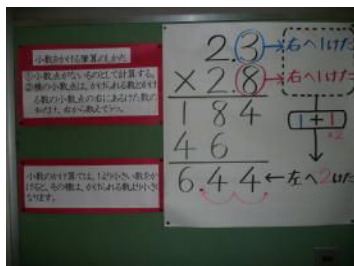 小数をかける筆算のしかた
①小数点がないものとして計算する。
②積の小数点は、かけられる数とかけ
る数の小数点の右にあるけた数の
和だけ、右から数えてうつ。
小数のかけ算では、1より小さい数をか
けると、その積は、かけられる数より小さく
なります。
2.3→右へ1けた
×2.8→右へ1けた
184
1+1
46
6.44←左へ2けた